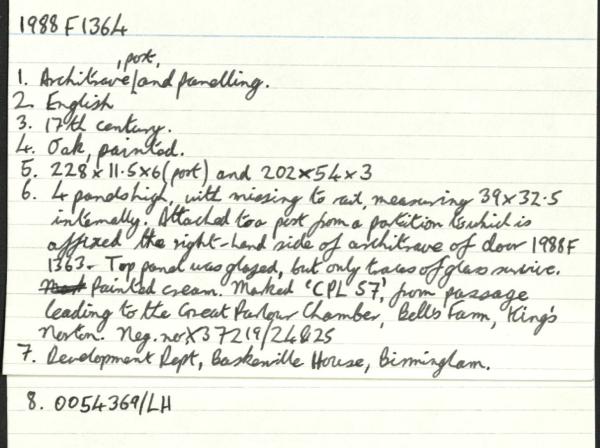 1988 F1364
, post,
1. Architrave and panelling.
2. English
3. 17th century.
4. Oak, painted.
5. 228 x 11.5 x 6 (post) and 202 x 54 x 3
6. 4 panels high, with missing to rail, measuring 39 x 32.5
internally. Attached to a post from a partition to which is
affixed the right-hand side of architrave of door 1988F
1363. Top panel was glazed, but only traces of glass survive.
Painted cream. Marked 'CPL 57', from passage
leading to the Great Parlour Chamber, Bells Farm, King's
Norton. Neg. no X37219/24&25
7. Development Dept, Baskerville House, Birmingham.
8. 0054369/LH